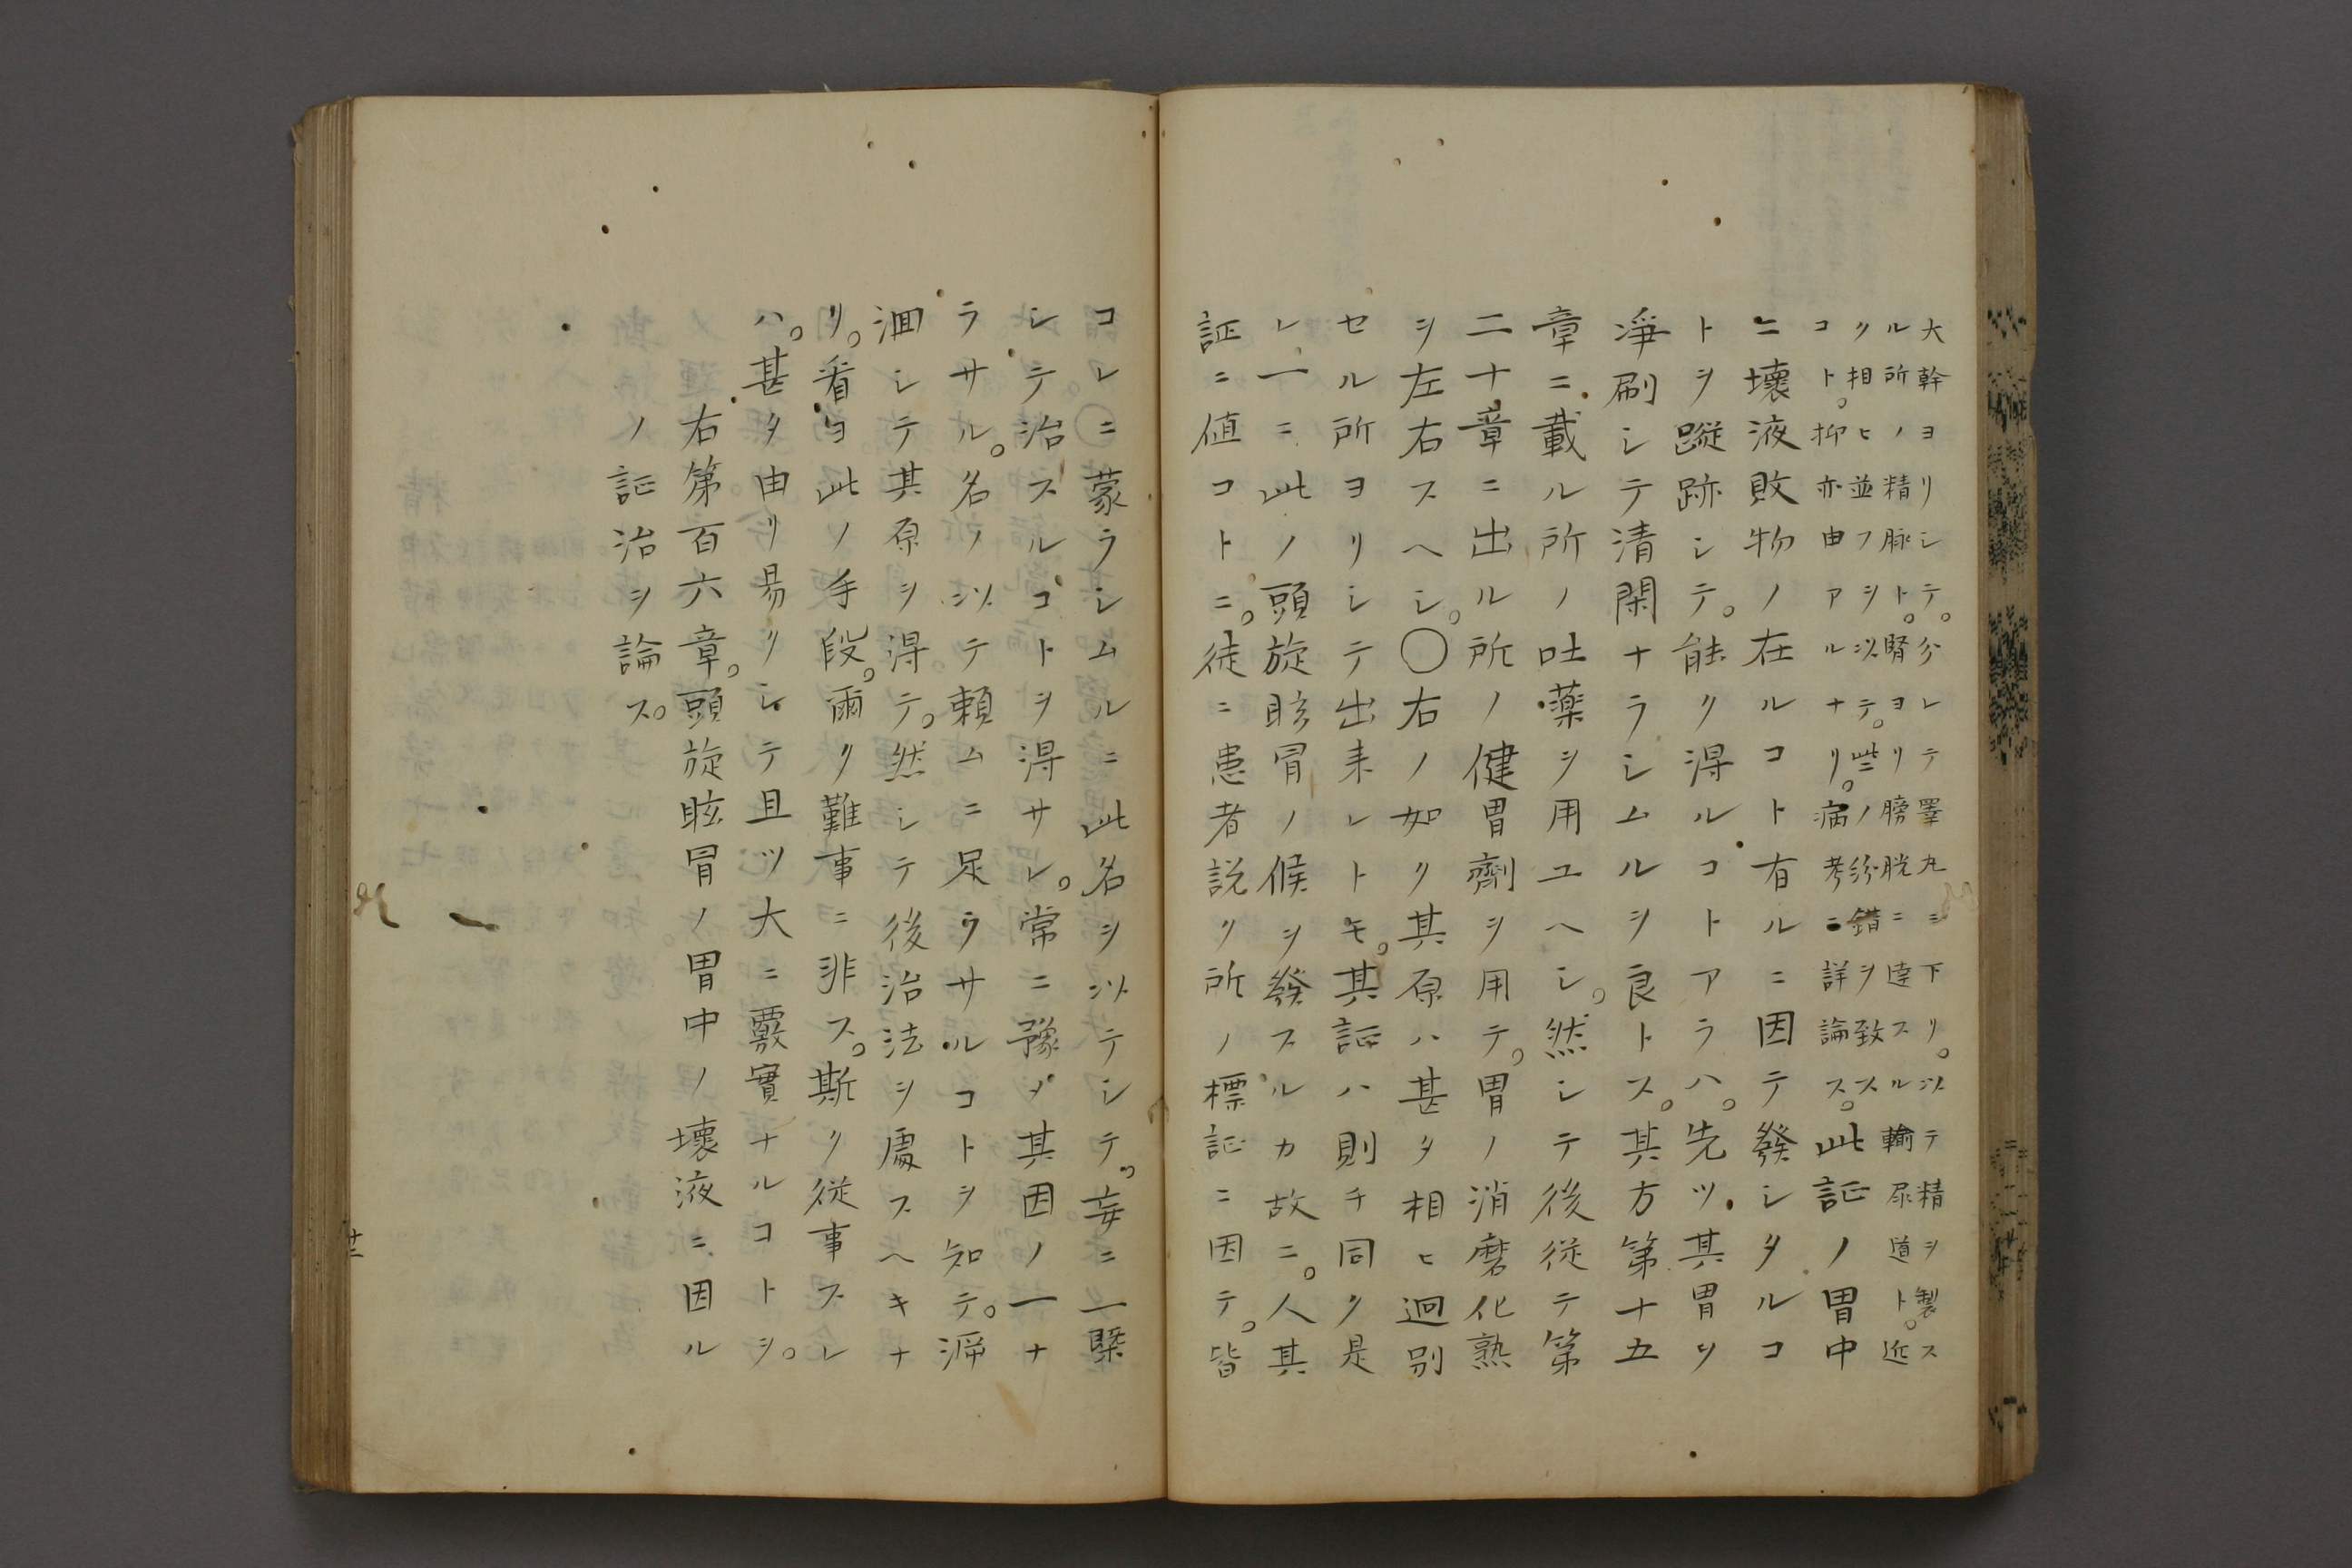 大幹ヨリシテ。分レテ睪丸ニ下リ。以テ精ヲ製ス
ル所ノ精脉ト。腎ヨリ膀胱ニ達スル輸尿道ト。近
ク相ヒ並フヲ以テ。此ノ紛錯ヲ致ス
コト。抑亦由アルナリ。病考ニ詳論ス。此証ノ胃中
ニ壊液敗物ノ在ルコト有ルニ因テ發シタルコ
トヲ蹤跡シテ。能ク得ルコトアラハ。先ツ其胃ヲ
淨刷シテ清閑ナラシムルヲ良トス。其方第十五
章ニ載ル所ノ吐藥ヲ用ユヘシ。然シテ後従テ第
二十章ニ出ル所ノ健胃劑ヲ用テ。胃ノ消磨化熟
ヲ左右スヘシ。〇右ノ如ク其原ハ甚タ相ヒ迥別
セル所ヨリシテ出来レトモ。其証ハ則チ同ク是
レ一ニ此ノ頭旋眩冒ノ候ヲ發スルカ故ニ。人其
証ニ値コトニ。徒ニ患者説ク所ノ標証ニ因テ。皆
コレニ蒙ラシムルニ此名ヲ以テシテ。妄ニ一槩
シテ治スルコトヲ得サレ。常ニ豫メ其因ノ一ナ
ラサル。名ノ以テ頼ムニ足ラサルコトヲ知テ。泝
洄シテ其原ヲ得テ。然シテ後治法ヲ處スヘキナ
リ。看ヨ此ノ手段。爾ク難事ニ非ス。斯ク従事スレ
ハ。甚タ由リ易クシテ且ツ大ニ覈實ナルコトヲ。
右第百六章。頭旋眩冒ノ胃中ノ壊液ニ因ル
ノ証治ヲ論ス。
廿二